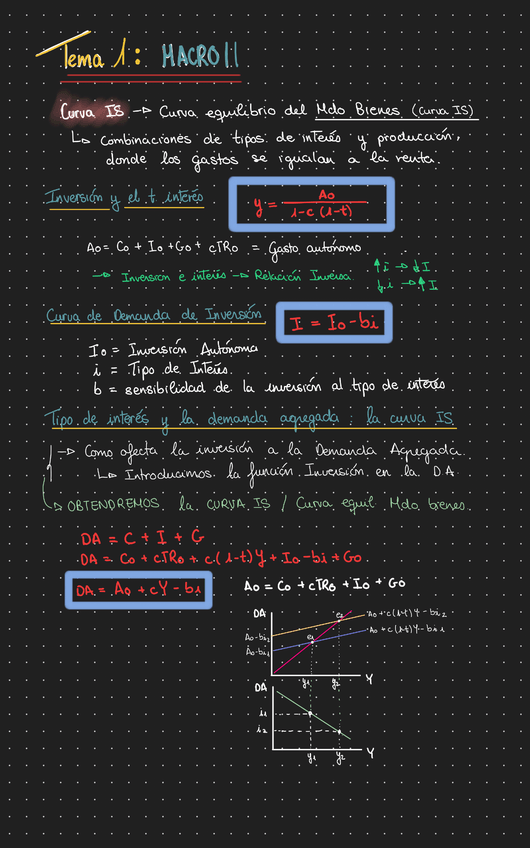 Tema 1: MACRO II
Curva IS → Curva equilibrio del Mdo Bienes (curva IS)
↳ Combinaciones de tipos de interés y producción,
donde los gastos se igualan a la renta.
Inversión y el t. interés
y = Ao / 1-c (1-t)
Ao = Co + Io + Go + cTRo = Gasto autónomo
→ Inversión e interés → Relación Inversa
↑i → ↓I
↓i → ↑I
Curva de Demanda de Inversión
I = Io - bi
Io = Inversión Autónoma
i = Tipo de Interés
b = sensibilidad de la inversión al tipo de interés
Tipo de interés y la demanda agregada: la curva IS
→ Como afecta la inversión a la Demanda Agregada.
↳ Introducimos la función Inversión en la DA
↳ OBTENDREMOS la CURVA IS / Curva equil Mdo bienes.
DA = C + I + G
DA = Co + cTRo + c(1-t)Y + Io - bi + Go
DA = Ao + cY - bi
Ao = Co + cTRo + Io + Go
DA
Ao-bi2
Ao-bi1
e1
e2
Ao + c(1-t)Y - bi2
Ao + c(1-t)Y - bi1
y1
y2
Y
DA
i1
i2
y1
y2
Y